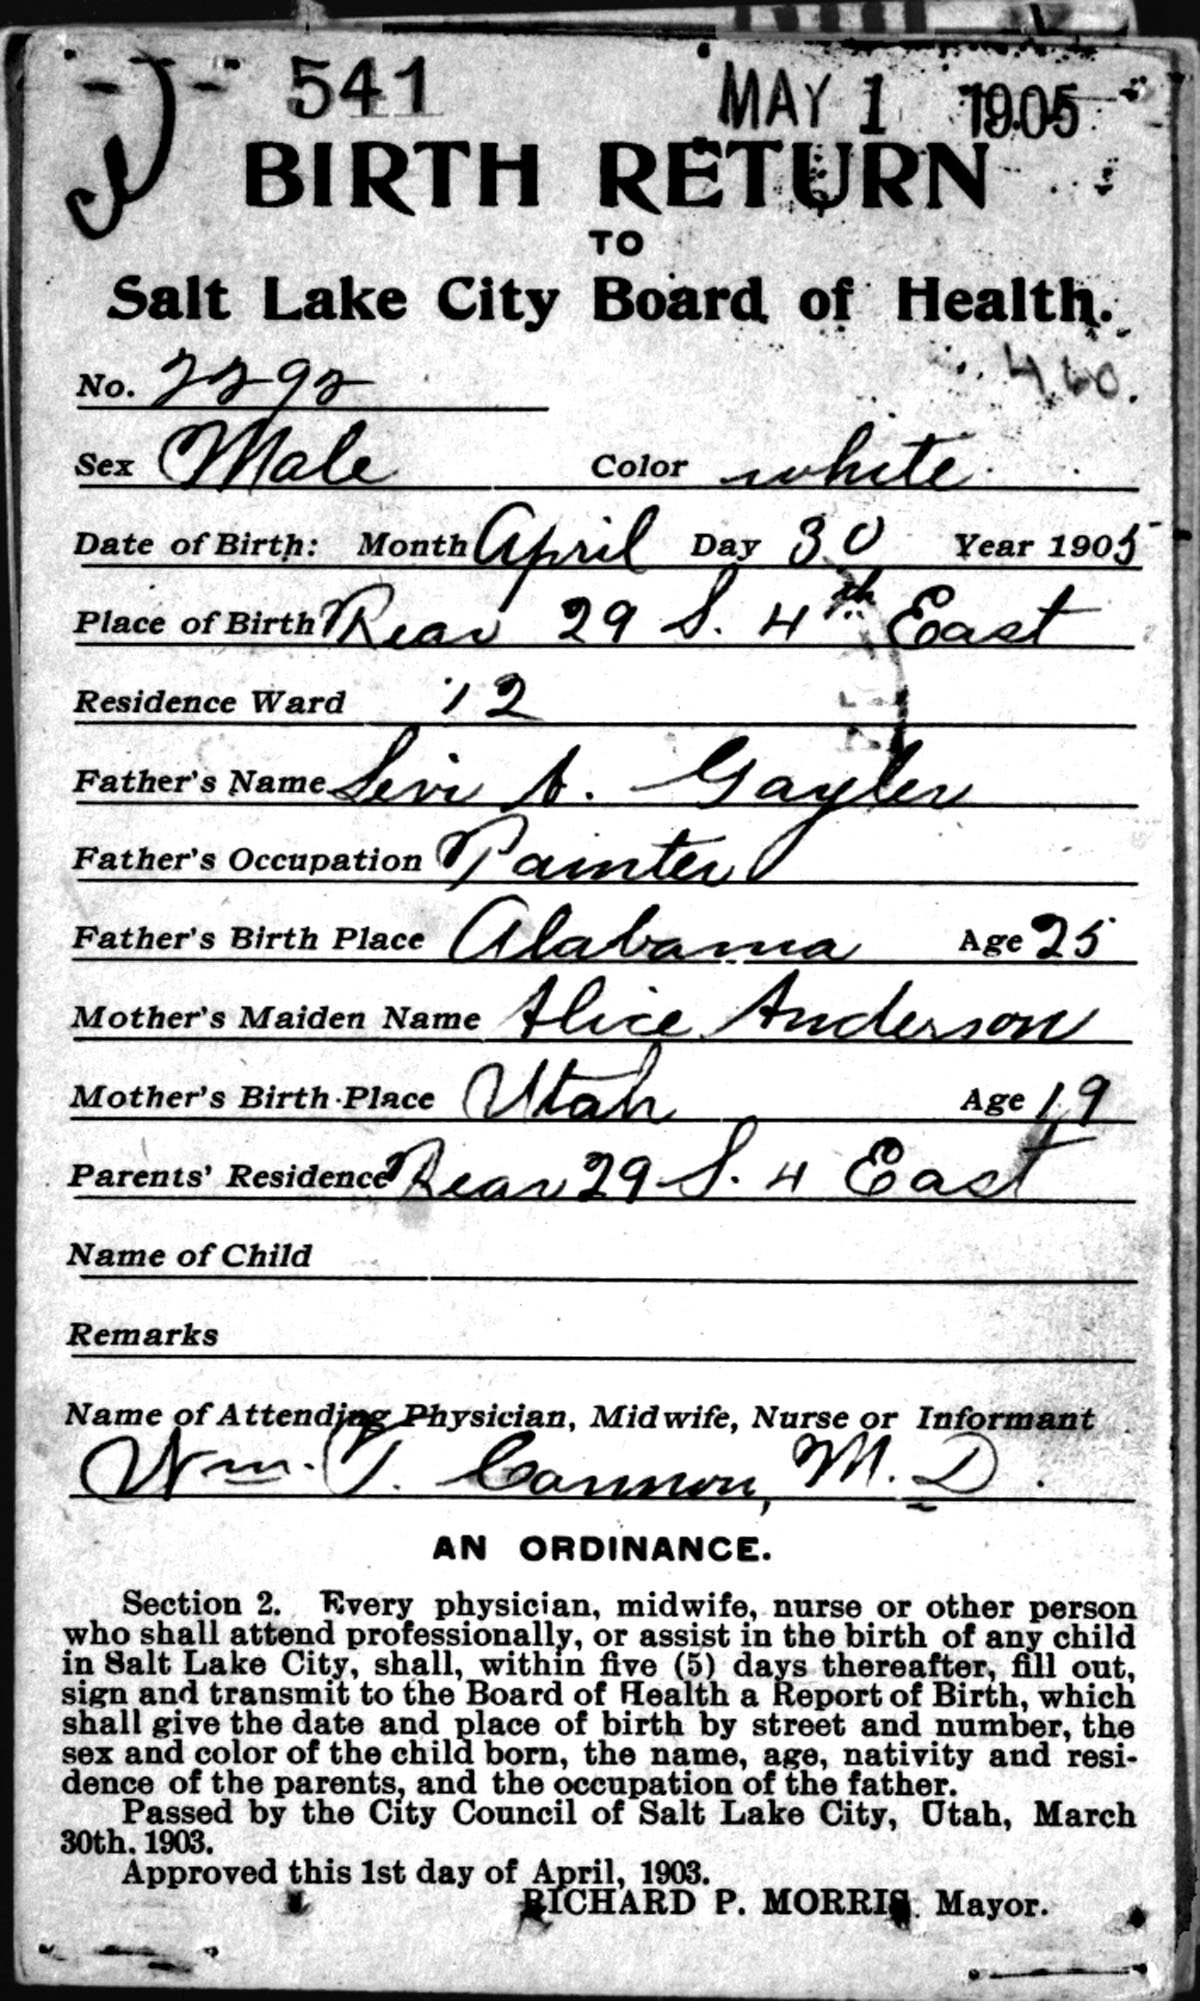 541 MAY 1 1905
BIRTH RETURN
TO
Salt Lake City Board of Health.
460.
No. 2292
Sex Male Color white
Date of Birth: Month April Day 30 Year 1905
Place of Birth Rear 29 S. 4th East
Residence Ward 12
Father's Name Levi A. Gayler
Father's Occupation Painter
Father's Birth Place Alabama Age 25
Mother's Maiden Name Alice Anderson
Mother's Birth Place Utah Age 19
Parents' Residence Rear 29 S. 4 East
Name of Child
Remarks
Name of Attending Physician, Midwife, Nurse or Informant
Wm. T. Cannon, M. D.
AN ORDINANCE.
Section 2. Every physician, midwife, nurse or other person
who shall attend professionally, or assist in the birth of any child
in Salt Lake City, shall, within five (5) days thereafter, fill out,
sign and transmit to the Board of Health a Report of Birth, which
shall give the date and place of birth by street and number, the
sex and color of the child born, the name, age, nativity and resi-
dence of the parents, and the occupation of the father.
Passed by the City Council of Salt Lake City, Utah, March
30th. 1903.
Approved this 1st day of April, 1903.
RICHARD P. MORRIS. Mayor.